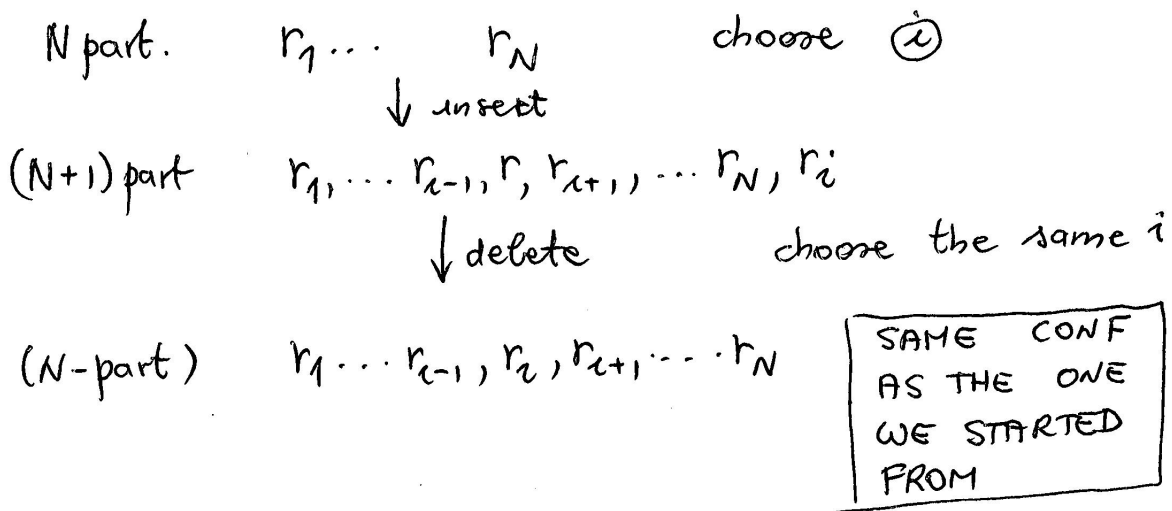 N part. r₁ ... r_N choose ⓘ
↓ insert
(N+1) part r₁, ... r_{i-1}, r, r_{i+1}, ... r_N, r_i
↓ delete choose the same i
(N-part) r₁ ... r_{i-1}, r_i, r_{i+1}, ... r_N
SAME CONF
AS THE ONE
WE STARTED
FROM